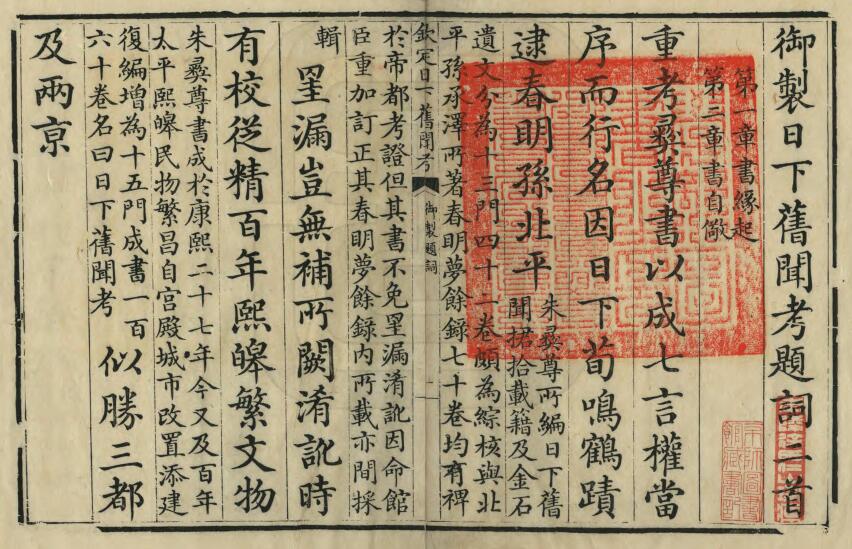 御製日下舊聞考題詞二首
第一章書緣起
第二章書自儆
重考彝尊書以成七言權當
序而行名因日下荀鳴鶴蹟
逮春明孫北平
朱彝尊所編日下舊
聞捃拾載籍及金石
遺文分為十三門四十二卷頗為綜核與北
平孫承澤所著春明夢餘錄七十卷均有裨
欽定日下舊聞考
御製題詞
一
於帝都考證但其書不免罣漏淆訛因命館
臣重加訂正其春明夢餘錄內所載亦間採
輯
罣漏豈無補所闕淆訛時
有校從精百年熙皞繁文物
朱彝尊書成於康熙二十七年今又及百年
太平熙皞民物繁昌自宮殿城市改置添建
復編增為十五門成書一百
六十卷名曰日下舊聞考
似勝三都
及兩京